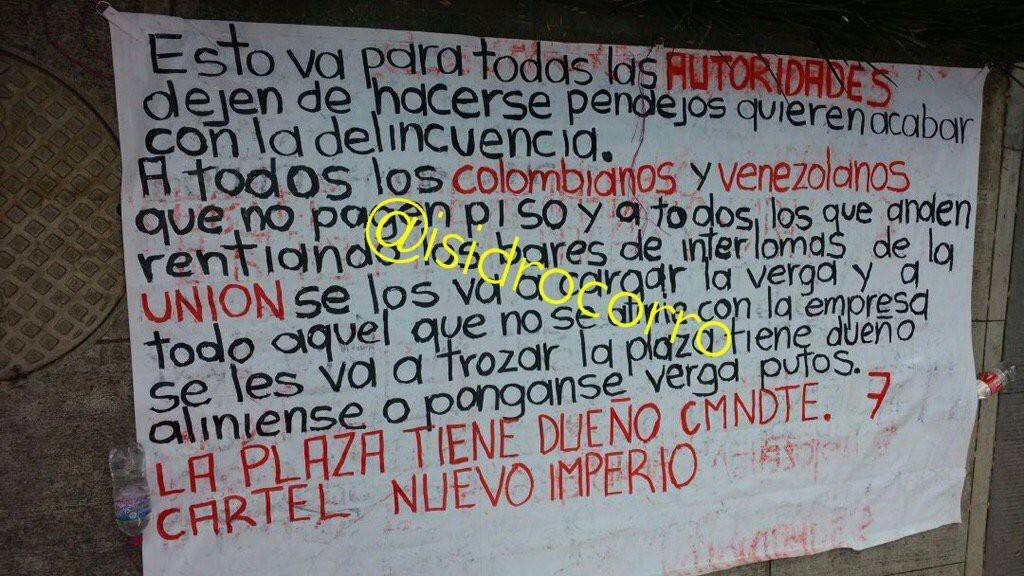 Esto va para todas las AUTORIDADES
dejen de hacerse pendejos quieren acabar
con la delincuencia.
A todos los colombianos y venezolanos
que no paguen piso y a todos los que anden
rentiando bares de interlomas de la
UNION se los va a cargar la verga y a
todo aquel que no se aline con la empresa
se les va a trozar la plaza tiene dueño
aliniense o ponganse verga putos.
LA PLAZA TIENE DUEÑO CMNDTE. 7
CARTEL NUEVO IMPERIO
@isidrocorro